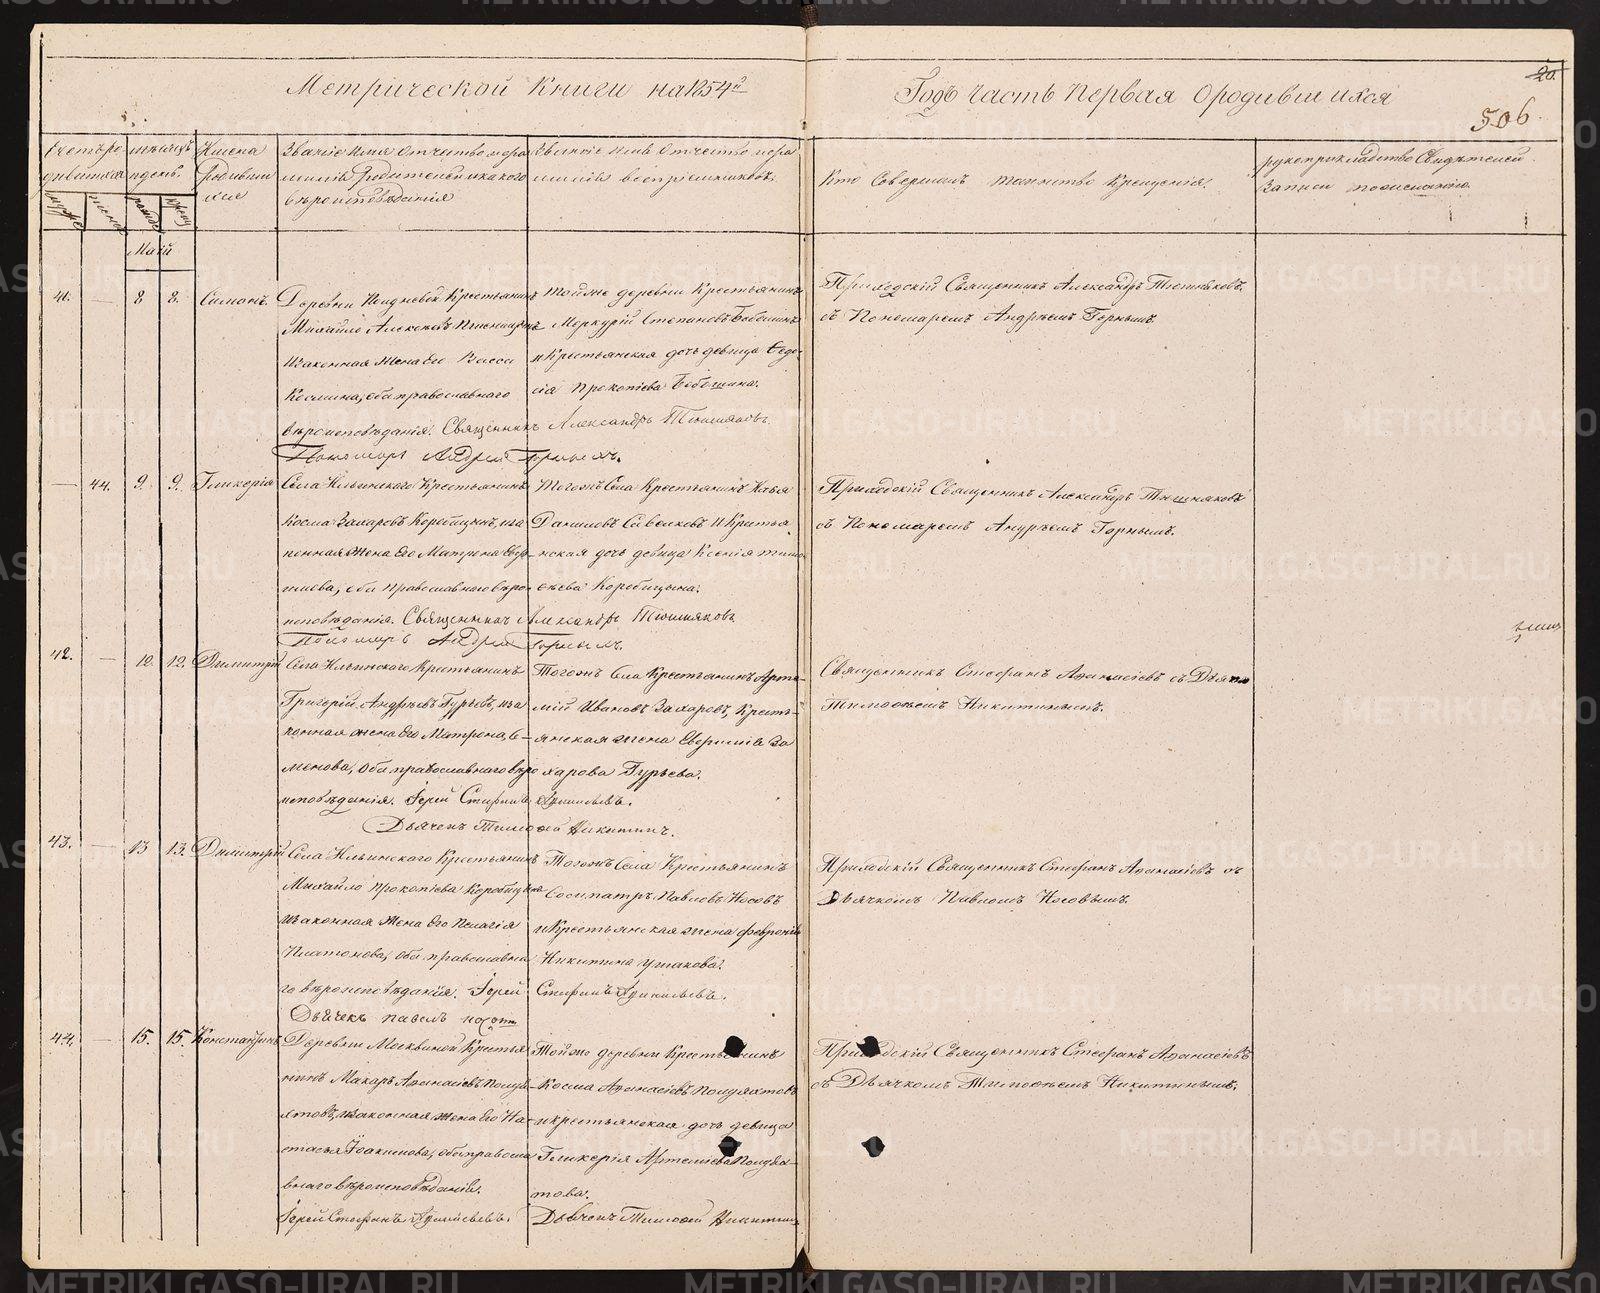 Метрической Книги на 1854й
Годъ Часть Первая О родившихся
20
506
Счетъ ро
дившихся
Мѣсяцъ
и день.
Имена
Родивши
хся
Званіе Имя Отчество и фа
милія Родителей и какого
вѣроисповѣданія
Званіе имя Отчество и фа
милія воспріемниковъ.
Кто Совершалъ таинство Крещенія.
рукоприкладство Свидѣтелей
Записи по желанію.
Маій
41. — 8 8. Симонъ.
Михайло Алексѣевъ
и законная Жена Его Васса
Космина, оба православнаго
вѣроисповѣданія. Священникъ
Тойже деревни Крестьянинъ
Меркурій Степановъ Бабошинъ
и Крестьянская дочь девица Ѳедо
сія Прокопіева Бабошина.
Александръ Тюшняковъ
Пономарь Андрей Горныхъ.
Приходскій Священникъ Александръ Тюшняковъ
съ Пономаремъ Андрѣемъ Горнымъ.
— 44. 9. 9. Гликерія
Села Ильинскаго Крестьянинъ
Косма Захаровъ Коробицынъ, и за
конная Жена Его Матрона
оба православнаго вѣро
исповѣданія. Священникъ Александръ Тюшняковъ
Пономарь Андрей Горныхъ.
Тогожъ Села Крестьянинъ Илья
Даниловъ Савелковъ и Крестья
нская дочь девица Ксенія Тимо
ѳеева Коробицына.
Приходскій Священникъ Александръ Тюшняковъ
съ Пономаремъ Андрѣемъ Горнымъ.
42. — 12. 12. Димитрій
Села Ильинскаго Крестьянинъ
Григорій Андрѣевъ Гурьевъ, и за
конная жена Его Матрона
оба православнаго вѣро
исповѣданія. Іерей Стефанъ Афанасьевъ.
Дьячекъ Тимофей Никитинъ.
Тогожъ Села Крестьянинъ Арте-
мій Ивановъ Захаровъ, Кресть-
янская жена Евфимія За
харова Гурьева.
Священникъ Стефанъ Афанасіевъ съ Дьячк
Тимоѳеемъ Никитинымъ.
43. — 13 13. Димитрій
Села Ильинскаго Крестьянинъ
Михайло Прокопіевъ Коробицынъ
и законная Жена Его Пелагія
Платонова, оба православна
го вѣроисповѣданія. Іерей Стефанъ Афанасьевъ.
Дьячекъ Павелъ Носовъ
Тогожъ Села Крестьянинъ
Сосипатръ Павловъ Носовъ
и Крестьянская жена Февронія
Никитина Ушакова.
Приходскій Священникъ Стефанъ Афанасіевъ съ
Дьячкомъ Павломъ Носовымъ.
44. — 15. 15. Константинъ
Деревни Москвиной Крестья
нинъ Макаръ Афанасіевъ Полуя
хтовъ, и законная жена Его На-
стасья Іоакимова, оба правосла
внаго вѣроисповѣданія.
Іерей Стефанъ Афанасьевъ.
Тойже деревни Крестьянинъ
Косма Афанасіевъ Полуяхтовъ
и крестьянская дочь девица
Гликерія Артеміева Полуях-
това.
Дьячекъ Тимофей Никитинъ
Приходскій Священникъ Стефанъ Афанасіевъ
съ Дьячкомъ Тимоѳеемъ Никитинымъ.
METRIKI.GASO-URAL.RU